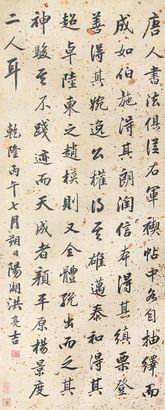 唐人書法俱從右軍禊帖中各自抽繹而
成如伯施得其朗潤信本得其縝栗登
善得其婉逸公權得其雄邁泰和得其
超卓陸東之趙模則又全體出而之其
神駿至不踐迹而天成者顏平原楊景度
二人耳 乾隆丙午七月朔日陽湖洪亮吉